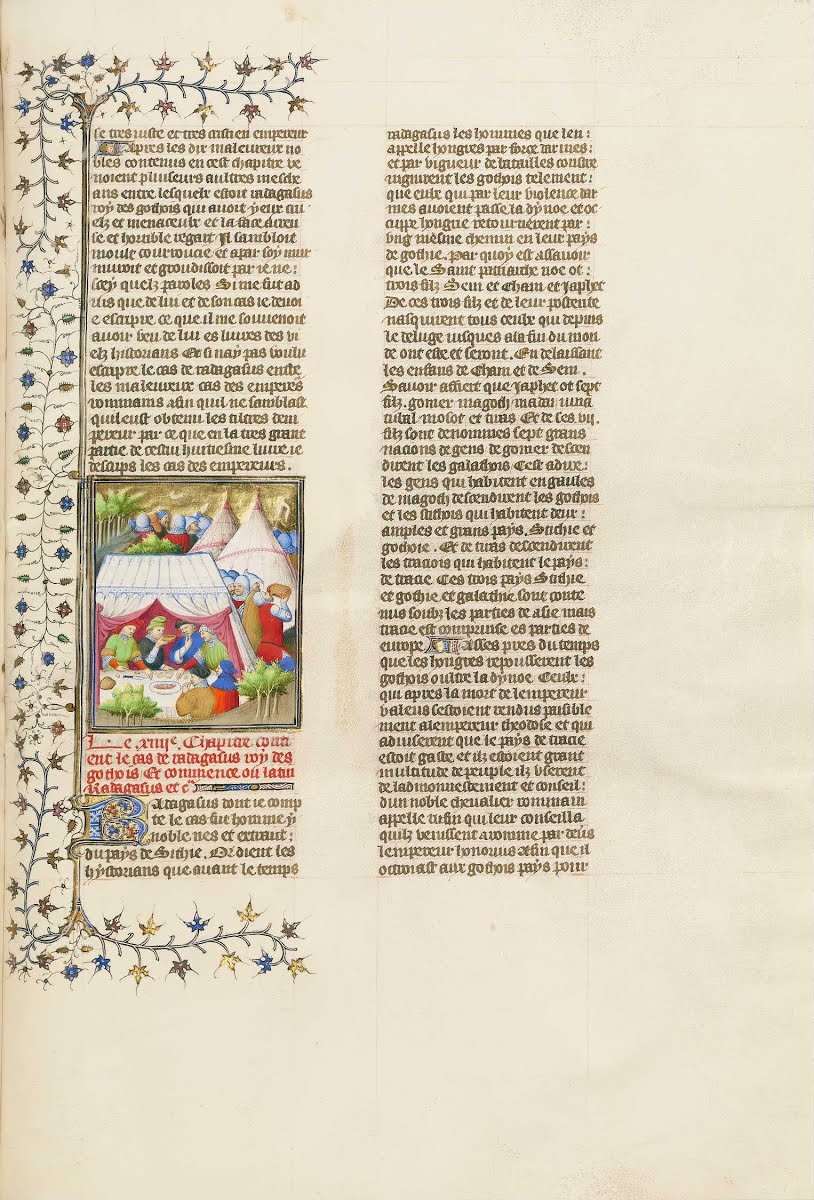 se tres iuste et tres cristien empereur
Apres les dix maleureux no
bles contenus en cest chapitre ve
noient pluseurs aultres mesche
ans entre lesquelx estoit radagasus
roy des gothois qui auoit yeux cru
elz et menaceux et la face dcreu
se et horrible regart Il sambloit
moult courroucie et apar soy mur
muroit et groudissoit par ie ne :
scey quelz paroles Si me fut ad
uis que de lui et de son cas ie deuoi
e escripre ce que il me souuenoit
auoir veu de lui es liures des vi
elz historians Et si nay pas voulu
escripre le cas de radagasus entre
les maleureux cas des emperes
rommains afin quil ne samblast
quil eust obtenu les tiltres dem
pereur par ce que en la tres grant
partie de cestui huitiesme liure ie
descrips les cas des empereurs .
Le .xiiiie. Chapitre conti
ent le cas de radagasus roy des
gothois Et commence ou latin
Radagasus et cet
Radagasus dont ie comp
te le cas fut homme y
noble nes et extrait :
du pays de Sichie . Or dient les
hystorians que auant le temps
radagasus les hommes que len :
appelle hongres par force darmes :
et par vigueur de batailles constre
ingnirent les gothois telement :
que eulx qui par leur violence dar
mes auoient passe la dynoe et oc
cupe hongrie retournerent par :
vng mesme chemin en leur pays
de gothie . Par quoy est assauoir
que le Saint patriarche noe ot :
trois filz Sem et Cham et Japhet
De ces trois filz et de leur posterite
nasquirent tous ceulx qui depuis
le deluge iusques ala fin du mon
de ont este et seront . En delaissant
les enfans de Cham et de Sem .
Sauoir affiert que Japhet ot sept
filz . gomer magoch madai iuna
tubal mosot et tiras Et de ses vij .
filz sont denommes sept grans
nacions de gens de gomer descen
dirent les galathois Cest adire :
les gens qui habitent en gaules
de magoch descendirent les gothois
et les sithois qui habitent deux :
amples et grans pays . Sitchie et
gothoie . Et de tiras descendirent
les traciois qui habitent le pays :
de tracie Ces trois pays Sichie
et gothie et galathie sont conte
nus soubz les parties de asie mais
tracie est comprinse es parties de
europe Asses pres du temps
que les hongres repousserent les
gothois oultre la dynoe Ceulx :
qui apres la mort de lempereur
valens sestoient rendus paisible
ment alempereur theodose et qui
aduiserent que le pays de tracie
estoit gaste et ilz estoient grant
multitude de peuple ilz vserent
de ladmonnestement et conseil :
dun noble cheualier rommain
appelle rufin qui leur conseilla
quilz venissent a romme par deuers
lempereur honorius afin que il
octroiast aux gothois pays pour